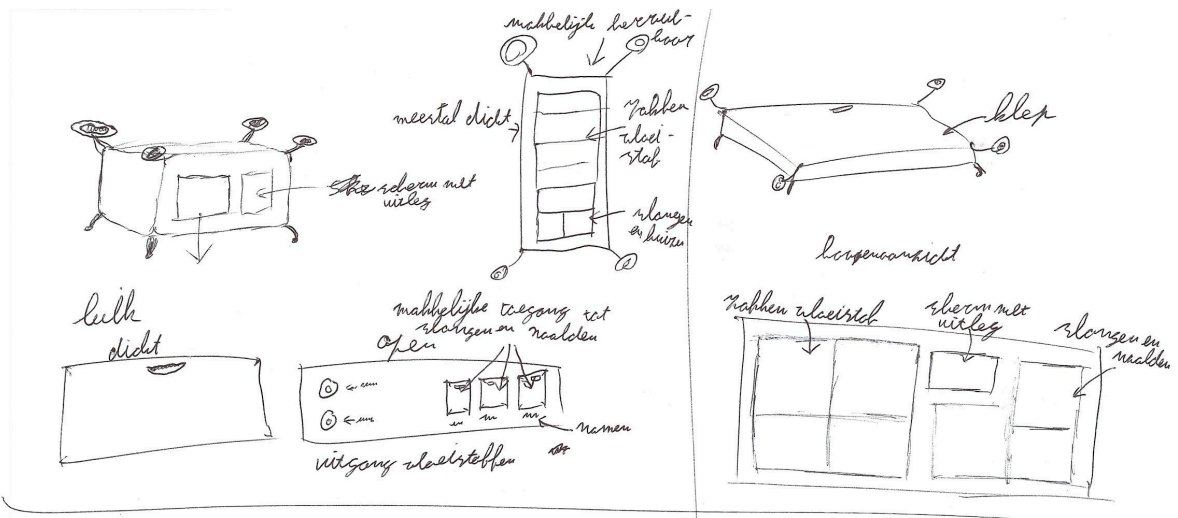 makkelijk bereik-
baar
meestal dicht
zakken
vloei-
stof
slangen
en buizen
scherm met
uitleg
klep
bovenaanzicht
luik
dicht
makkelijke toegang tot
slangen en naalden
open
namen
uitgang vloeistoffen
zakken vloeistof
scherm met
uitleg
slangen en
naalden